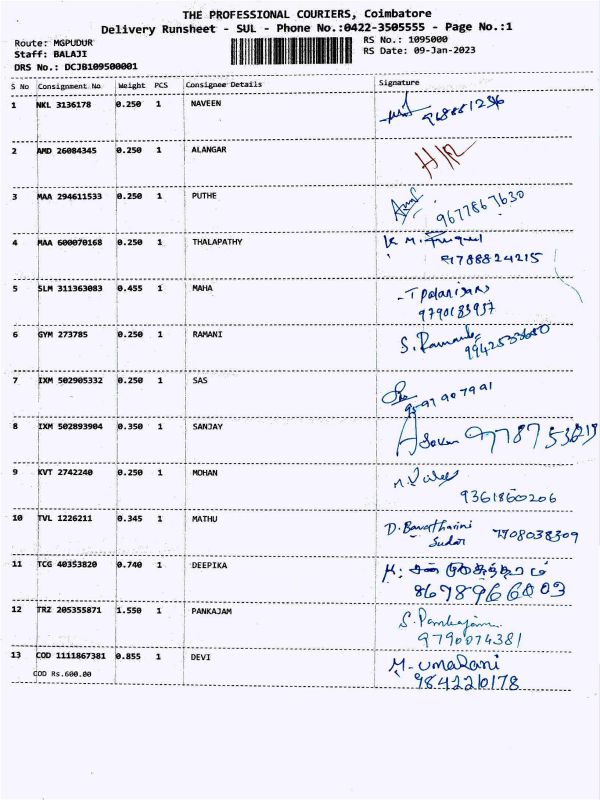 THE PROFESSIONAL COURIERS, Coimbatore
Delivery Runsheet - SUL - Phone No.:0422-3505555 - Page No.:1
Route: MGPUDUR
Staff: BALAJI
DRS No.: DCJB109500001
RS No.: 1095000
RS Date: 09-Jan-2023
S No Consignment No Weight PCS Consignee Details Signature
1 NKL 3136178 0.250 1 NAVEEN
2 AMD 26084345 0.250 1 ALANGAR
3 MAA 294611533 0.250 1 PUTHE
9677867630
4 MAA 600070168 0.250 1 THALAPATHY K M.
9788824215
5 SLM 311363083 0.455 1 MAHA
9790183957
6 GYM 273785 0.250 1 RAMANI S.
9942533680
7 IXM 502905332 0.250 1 SAS
8 IXM 502893904 0.350 1 SANJAY
9 KVT 2742240 0.250 1 MOHAN
9361860206
10 TVL 1226211 0.345 1 MATHU D. Bavatharini
7708038309
11 TCG 40353820 0.740 1 DEEPIKA
8678966003
12 TRZ 205355871 1.550 1 PANKAJAM S. Pankajam
9790074381
13 COD 1111867381 0.855 1 DEVI M. UmaRani
COD Rs.600.00 9842210178